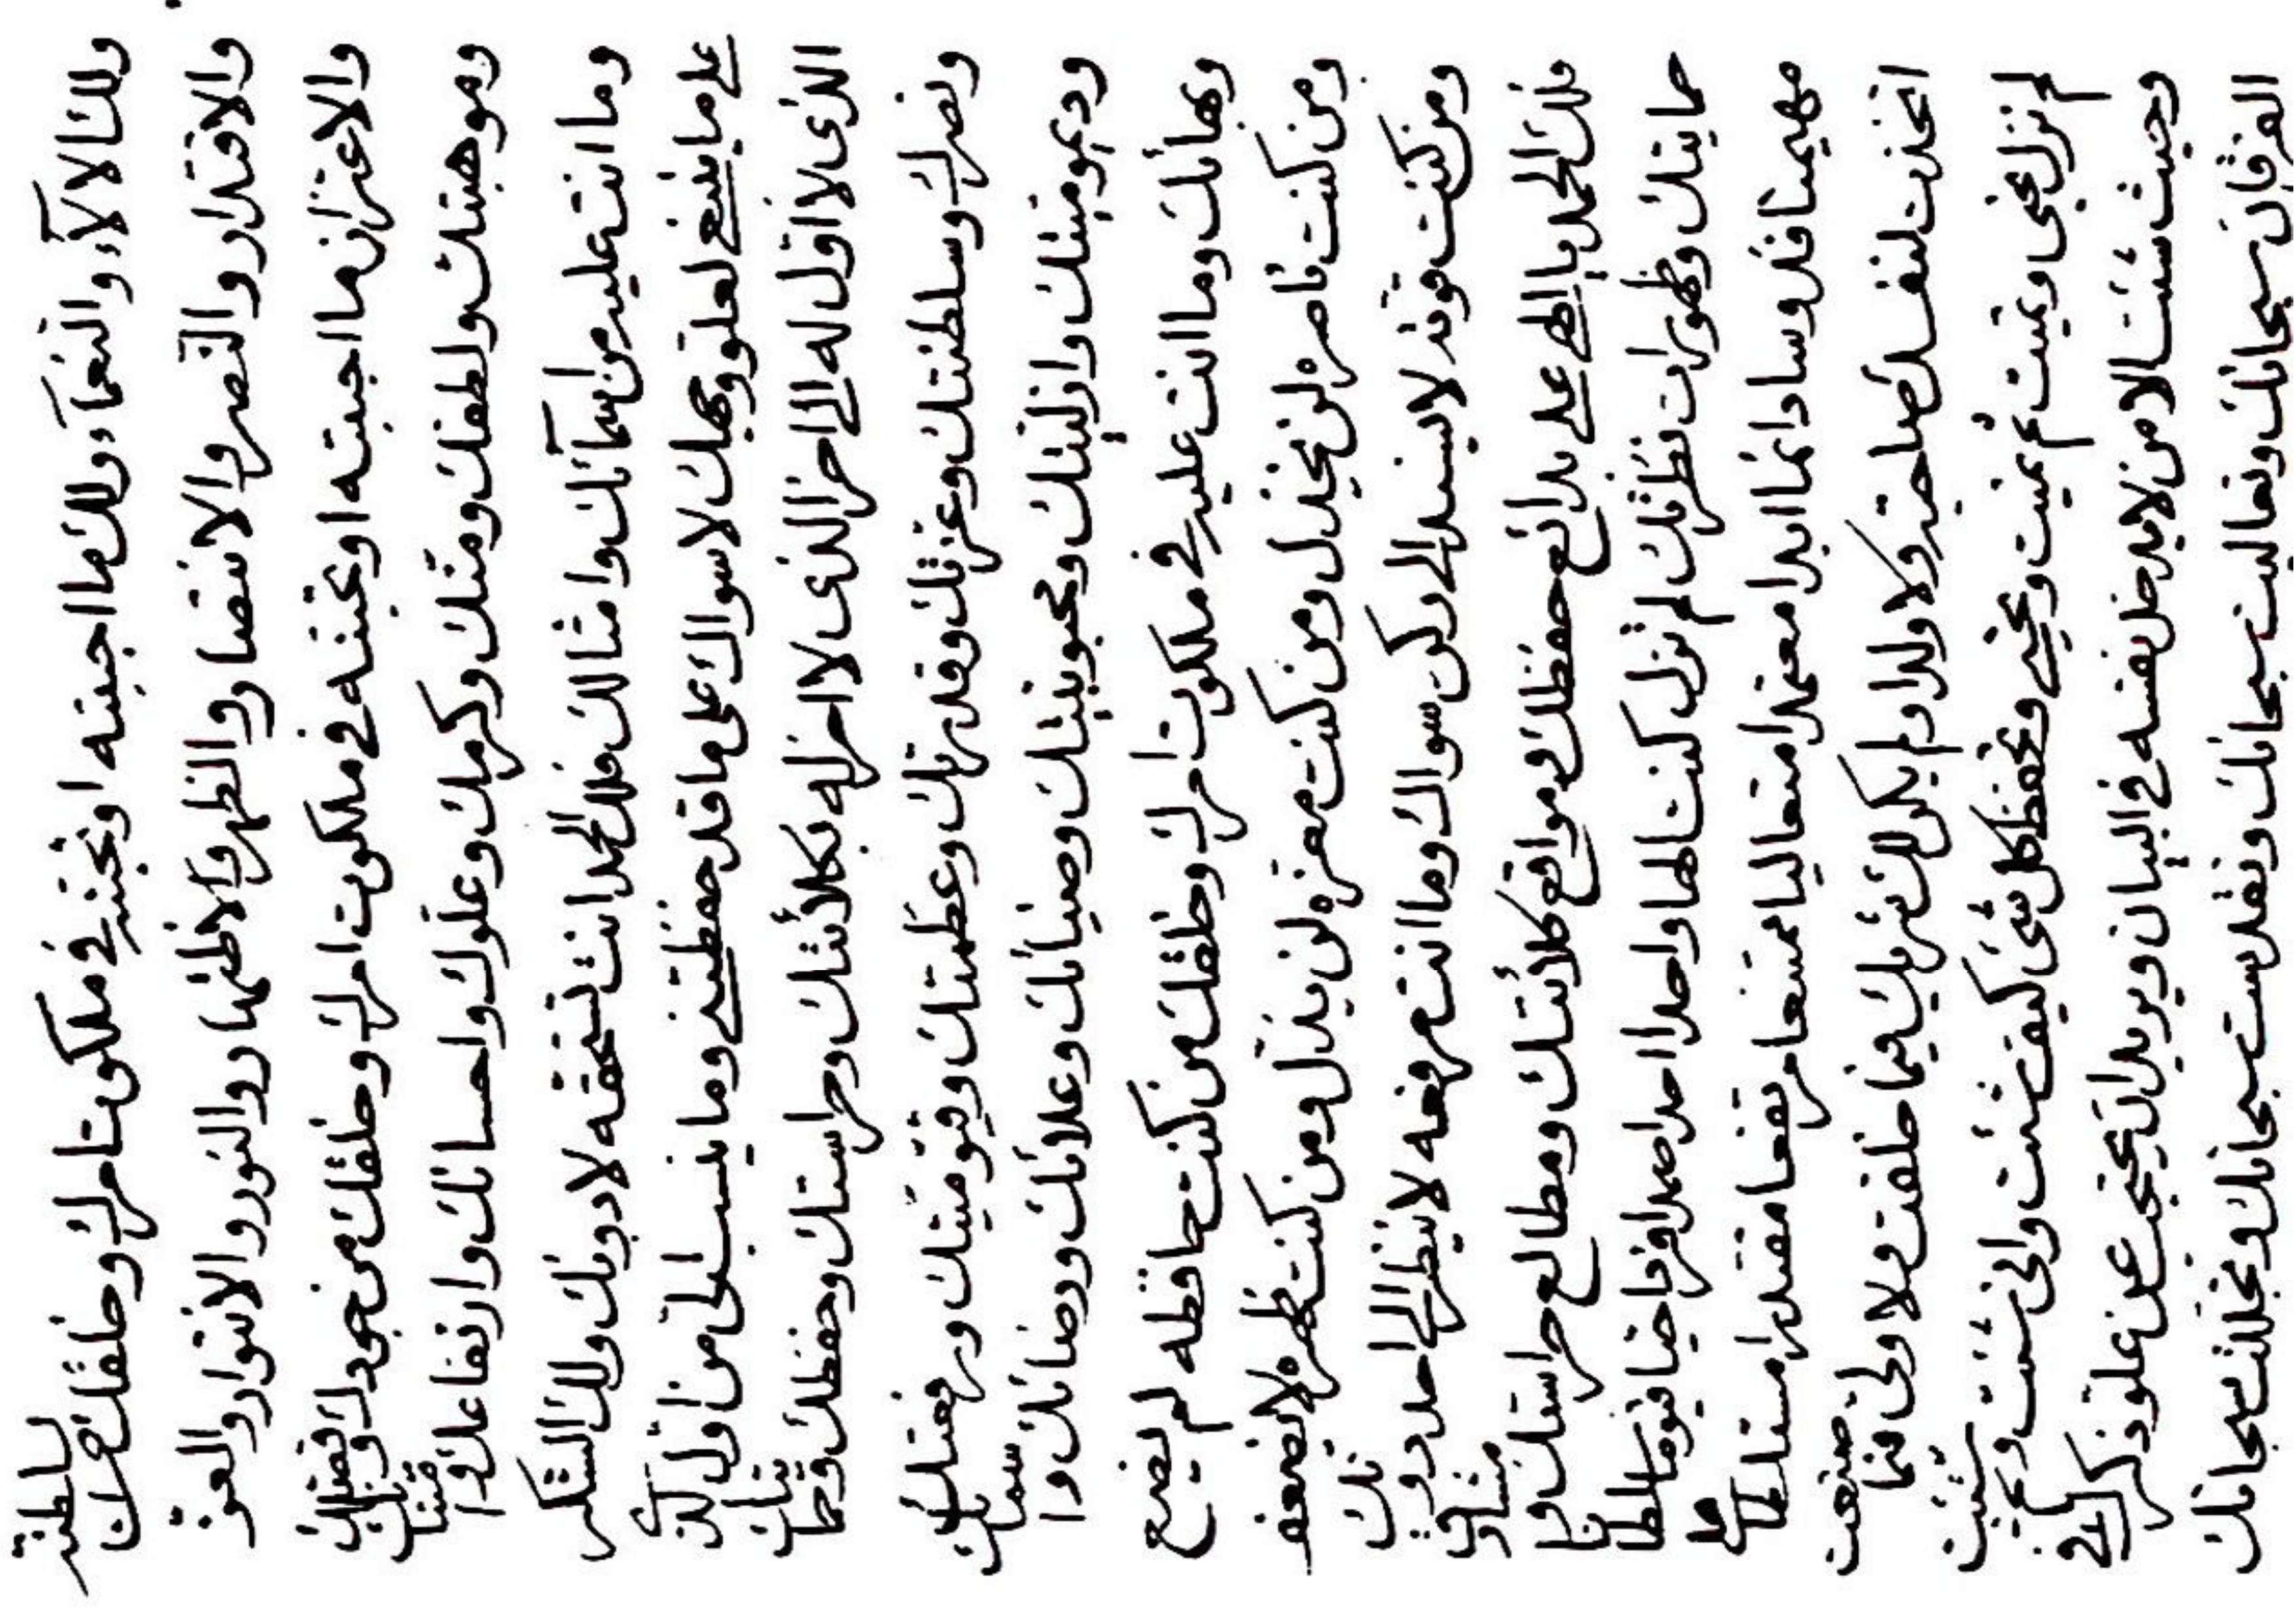 ولك الالآء والنعمآء ولك ما احببته او تحبنه في ملكوت امرك وخلقك من سلطنة
والاقتدار والنصر والانتصار والظهر والاظهار والنور والانوار والعز
والاعتزاز ما احببته او تحبنه في ملكوت امرك وخلقك من جودك وفضلك
وموهبتك ولطفك ومنك وكرمك وعلوك واحسانك وارتفاعك وا
وما انت عليه من اسمآئك وامثالك فلك الحمد انت تستحقه لا دونك ولك الشكر
على ما ينبغي لعلو وجهك لا سواك على ما قد حفظتني وما ينسب الى من اول
الذى لا اول له الى اخر الذى لا اخر له بكلائتك وحراستك وحفظك وحمايتك
ونصرك وسلطنتك وعزتك وقدرتك وعظمتك وقيوميتك ورفعتك
وديموميتك وازليتك ومحبوبيتك وضيائك وعلائك ورضائك وا
وبهائك وما انت عليه في ملكوت امرك وخلقك من كنت حافظه لم يضيع
ومن كنت ناصره لن يخذل ومن كنت معزه لن يذل ومن كنت ظهره لا يضعف
ومن كنت قوته لا يستند الى ركن سواك وما انت مرفعه لا ينظر الى احد دونك
فلك الحمد يا الهى على بدائع حفظك ومواقع كلائتك ومطالع حراستك و
حمايتك وظهورات نظرتك لم تزل كنت الها واحدا احدا صمدا فردا حيا قيوما سلطانا
مهيمنا قدوسا دائما ابدا معتمدا متعاليا ممتنعا مرتفعا مقتدرا مستلطا ما
اتخذت لنفسك صاحبة ولا ولدا ولم يكن لك شريك فيما خلقت ولا ولى فيما صنعت
لم تزل تحيى وتميت ثم تميت وتحيى وتحفظ كل شئ كيف شئت وانى شئت
وحيث شئت الا من لا يدخل نفسه في البيان ويريد ان يحتجب عن علو ذكرك في
الفرقان سبحانك وتعاليت سبحانك وتقدست سبحانك وتجللت سبحانك